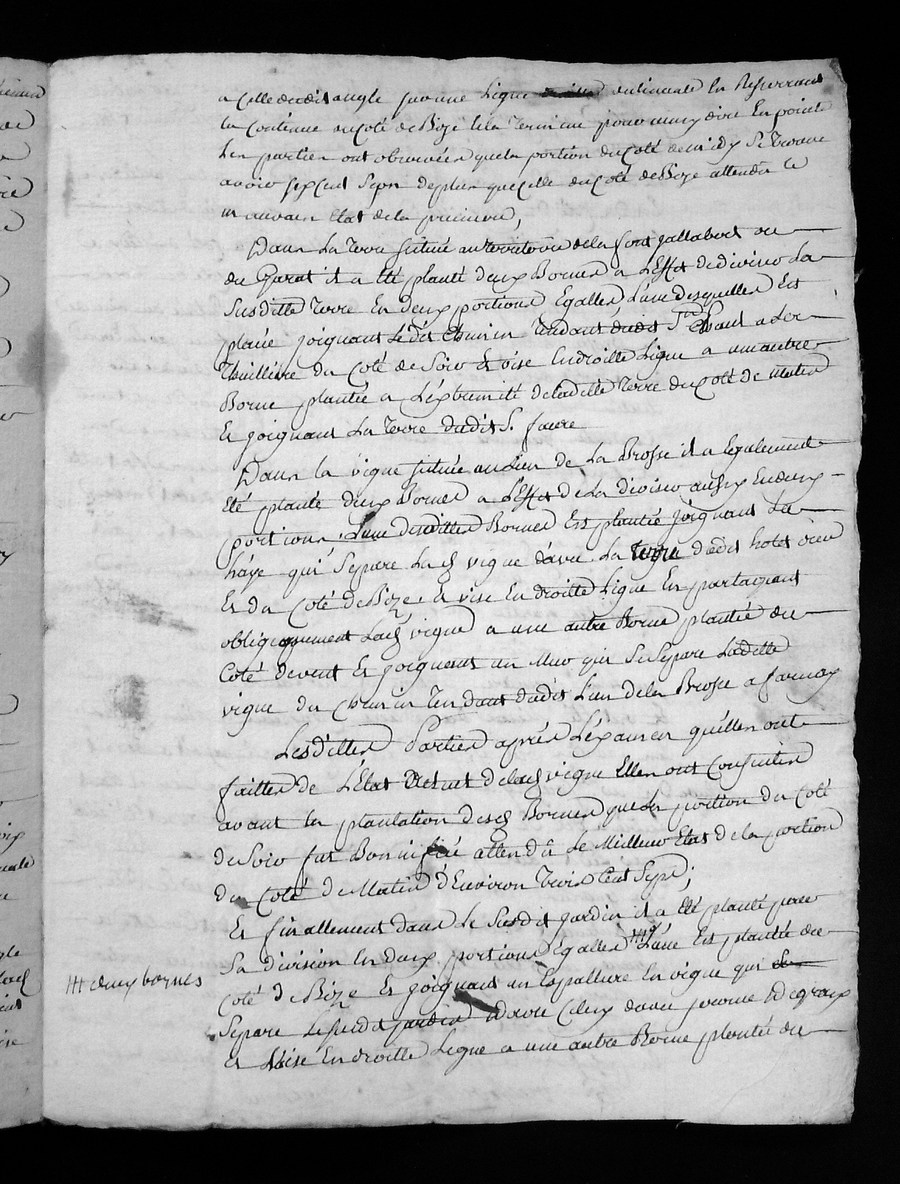 a celle dudit angle par une Ligne diclinale En Resserrant
la Contenue du Coté de Bize
Les parties ont observées que la portion du Coté de midy Se trouve
avoir sept cent sept de plus que celle du Coté de Bize attendu le
mauvais Etat de la premiere,
Dans La terre scituée au territoire de la font jallabert ou
du Garat il a Eté planté deux Bornes a L'Effet de diviser La
Susditte terre En deux portions Egalles L'une desquelles Est
placée joignant Ledit Chemin Tendant dudit St. Chaut a Ler-
thuilliere du Coté de Soir & vise En droitte Ligne a une autre
Borne plantée a L'extremité de laditte terre du Coté de matin
Et joignant La terre dudit S. faure
Dans la vigne scituée au Lieu de La Brosse il a Egalement
Eté planté deux Bornes a L'Effet de La diviser aussy En deux
portions L'une desdittes Bornes Est plantée joignant La
haye qui Separe Lad vigne d'avec La vigne dudit
Et du Coté de Bize & vise En droitte Ligne En partageant
obligeament Lad vigne a une autre Borne plantée du
Coté de vent Et joignant un Mur qui Se Separe Laditte
vigne du Chemin Tendant dudit Lieu de la Brosse a farnay
Lesdittes Parties aprés L'Examen qu'elles ont
faittes de L'Etat de lad vigne Elles ont Consenties
avant la plantation desd Bornes que La portion du Coté
de Soir fut Bonniffiée attendû Le Meilleur Etat de la portion
du Coté de Matin d'Environ trois Cent Sept;
Et finallement dans Le Susdit jardin il a Eté planté pour
Sa division En deux portions Egalles ## L'une Est plantée du
## deux bornes
Coté de Bize Et joignant un Espallure En vigne qui
Separe Le susdit jardin d'avec Celuy
Et Vise En droitte Ligne a une autre Borne plantée du